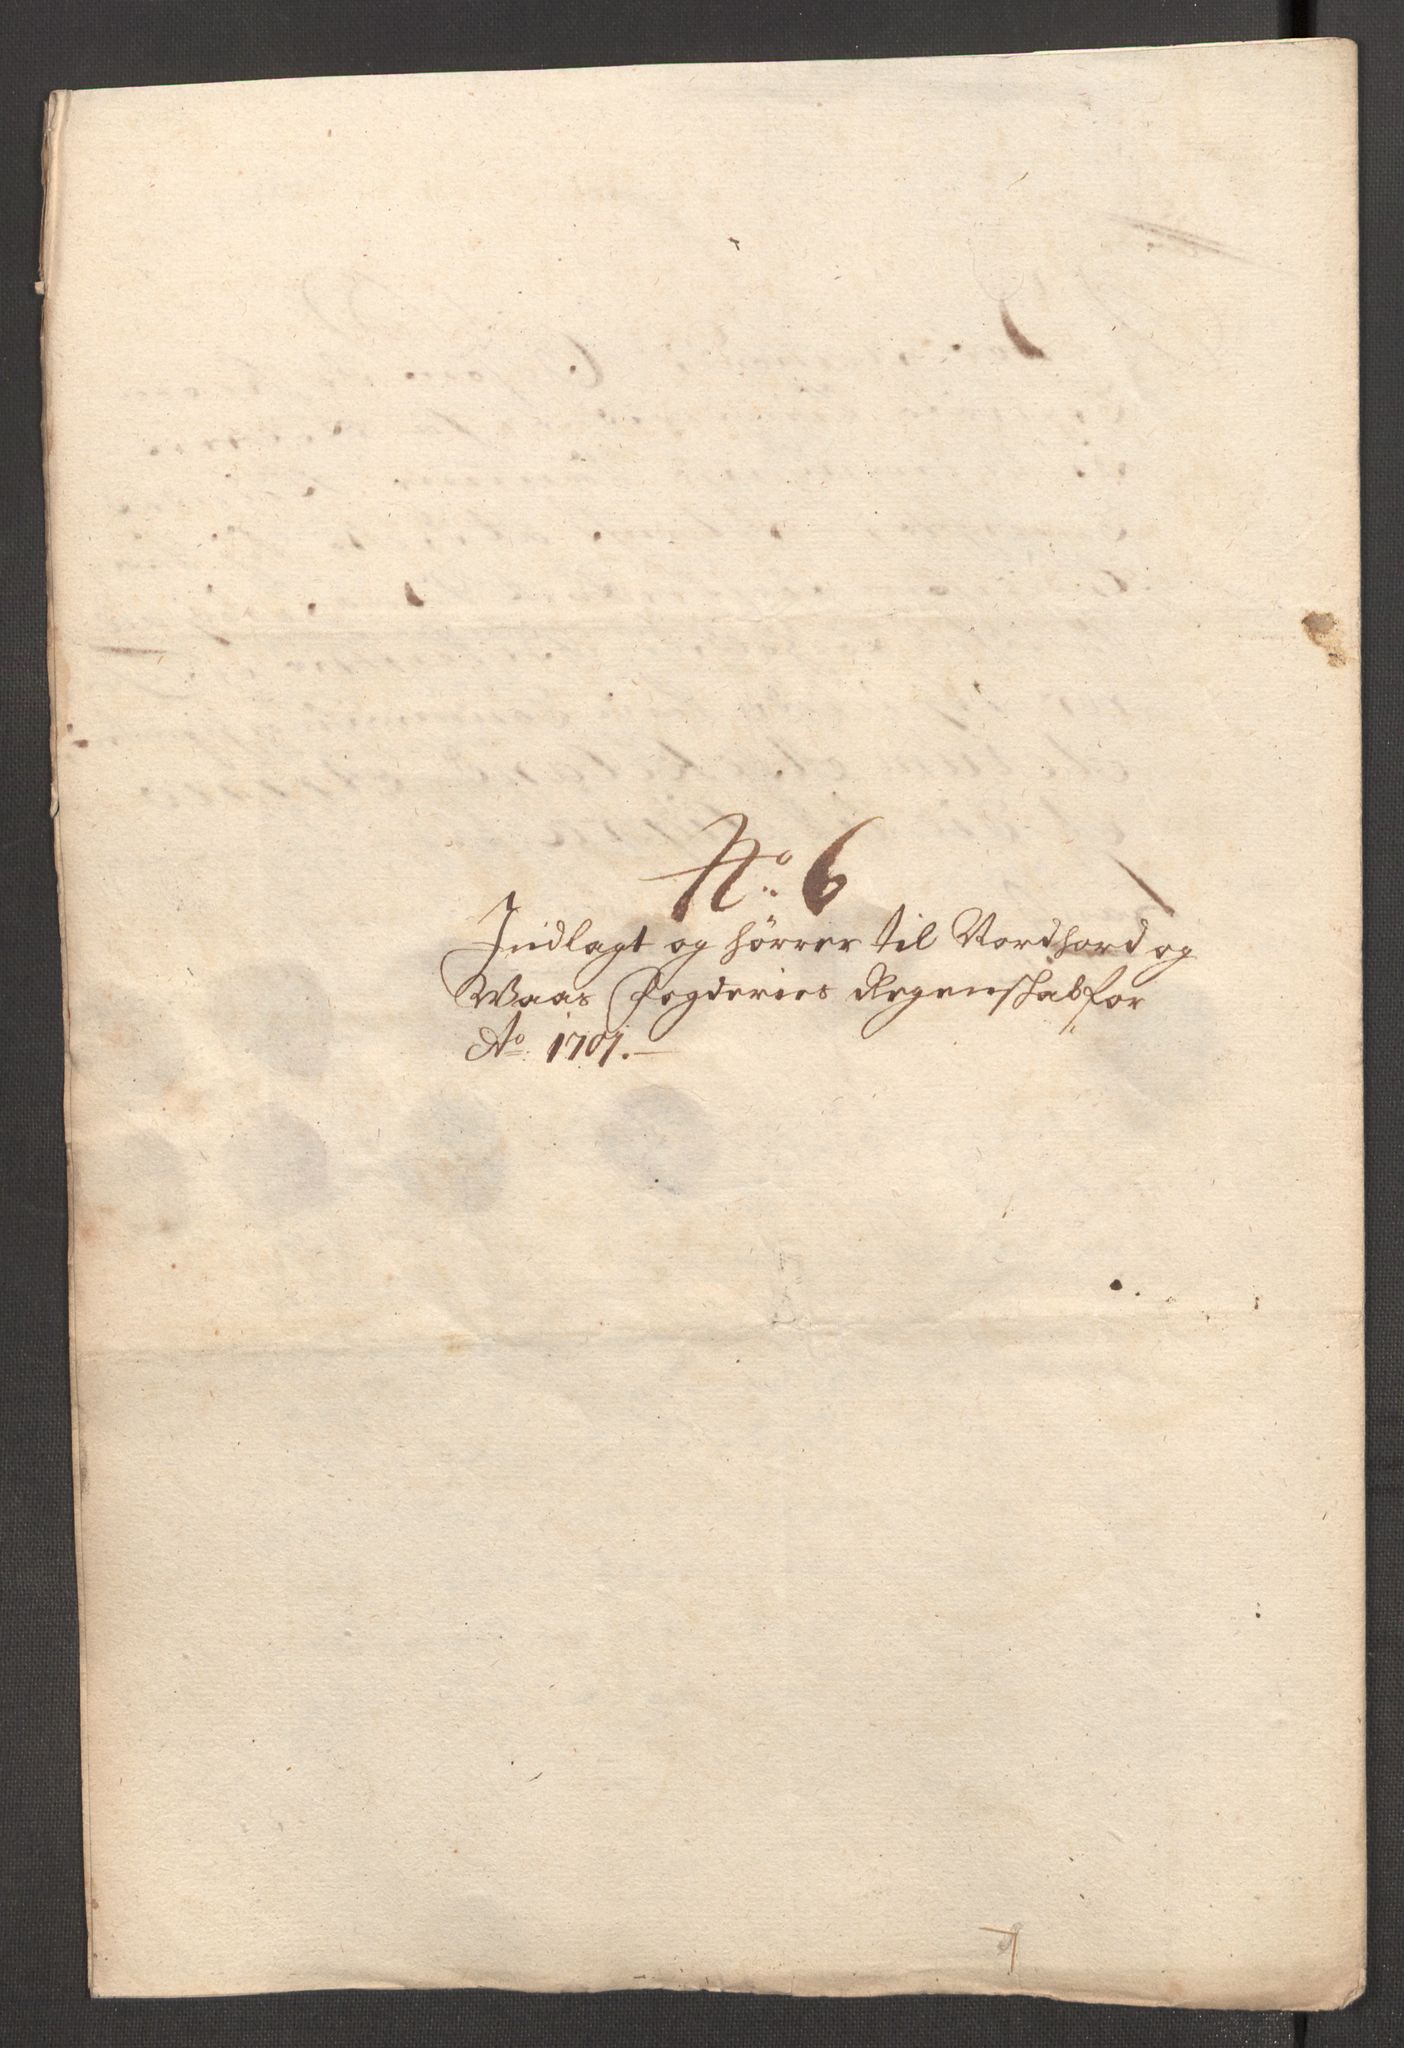 No. 6
Indlagt og hørrer til Nordhord og
Waas Fogderies Regenskab for
Ao: 1707.